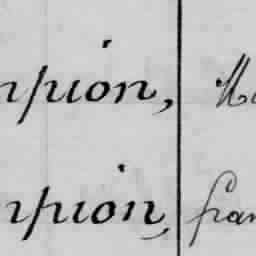 npion, Ma
npion, fran